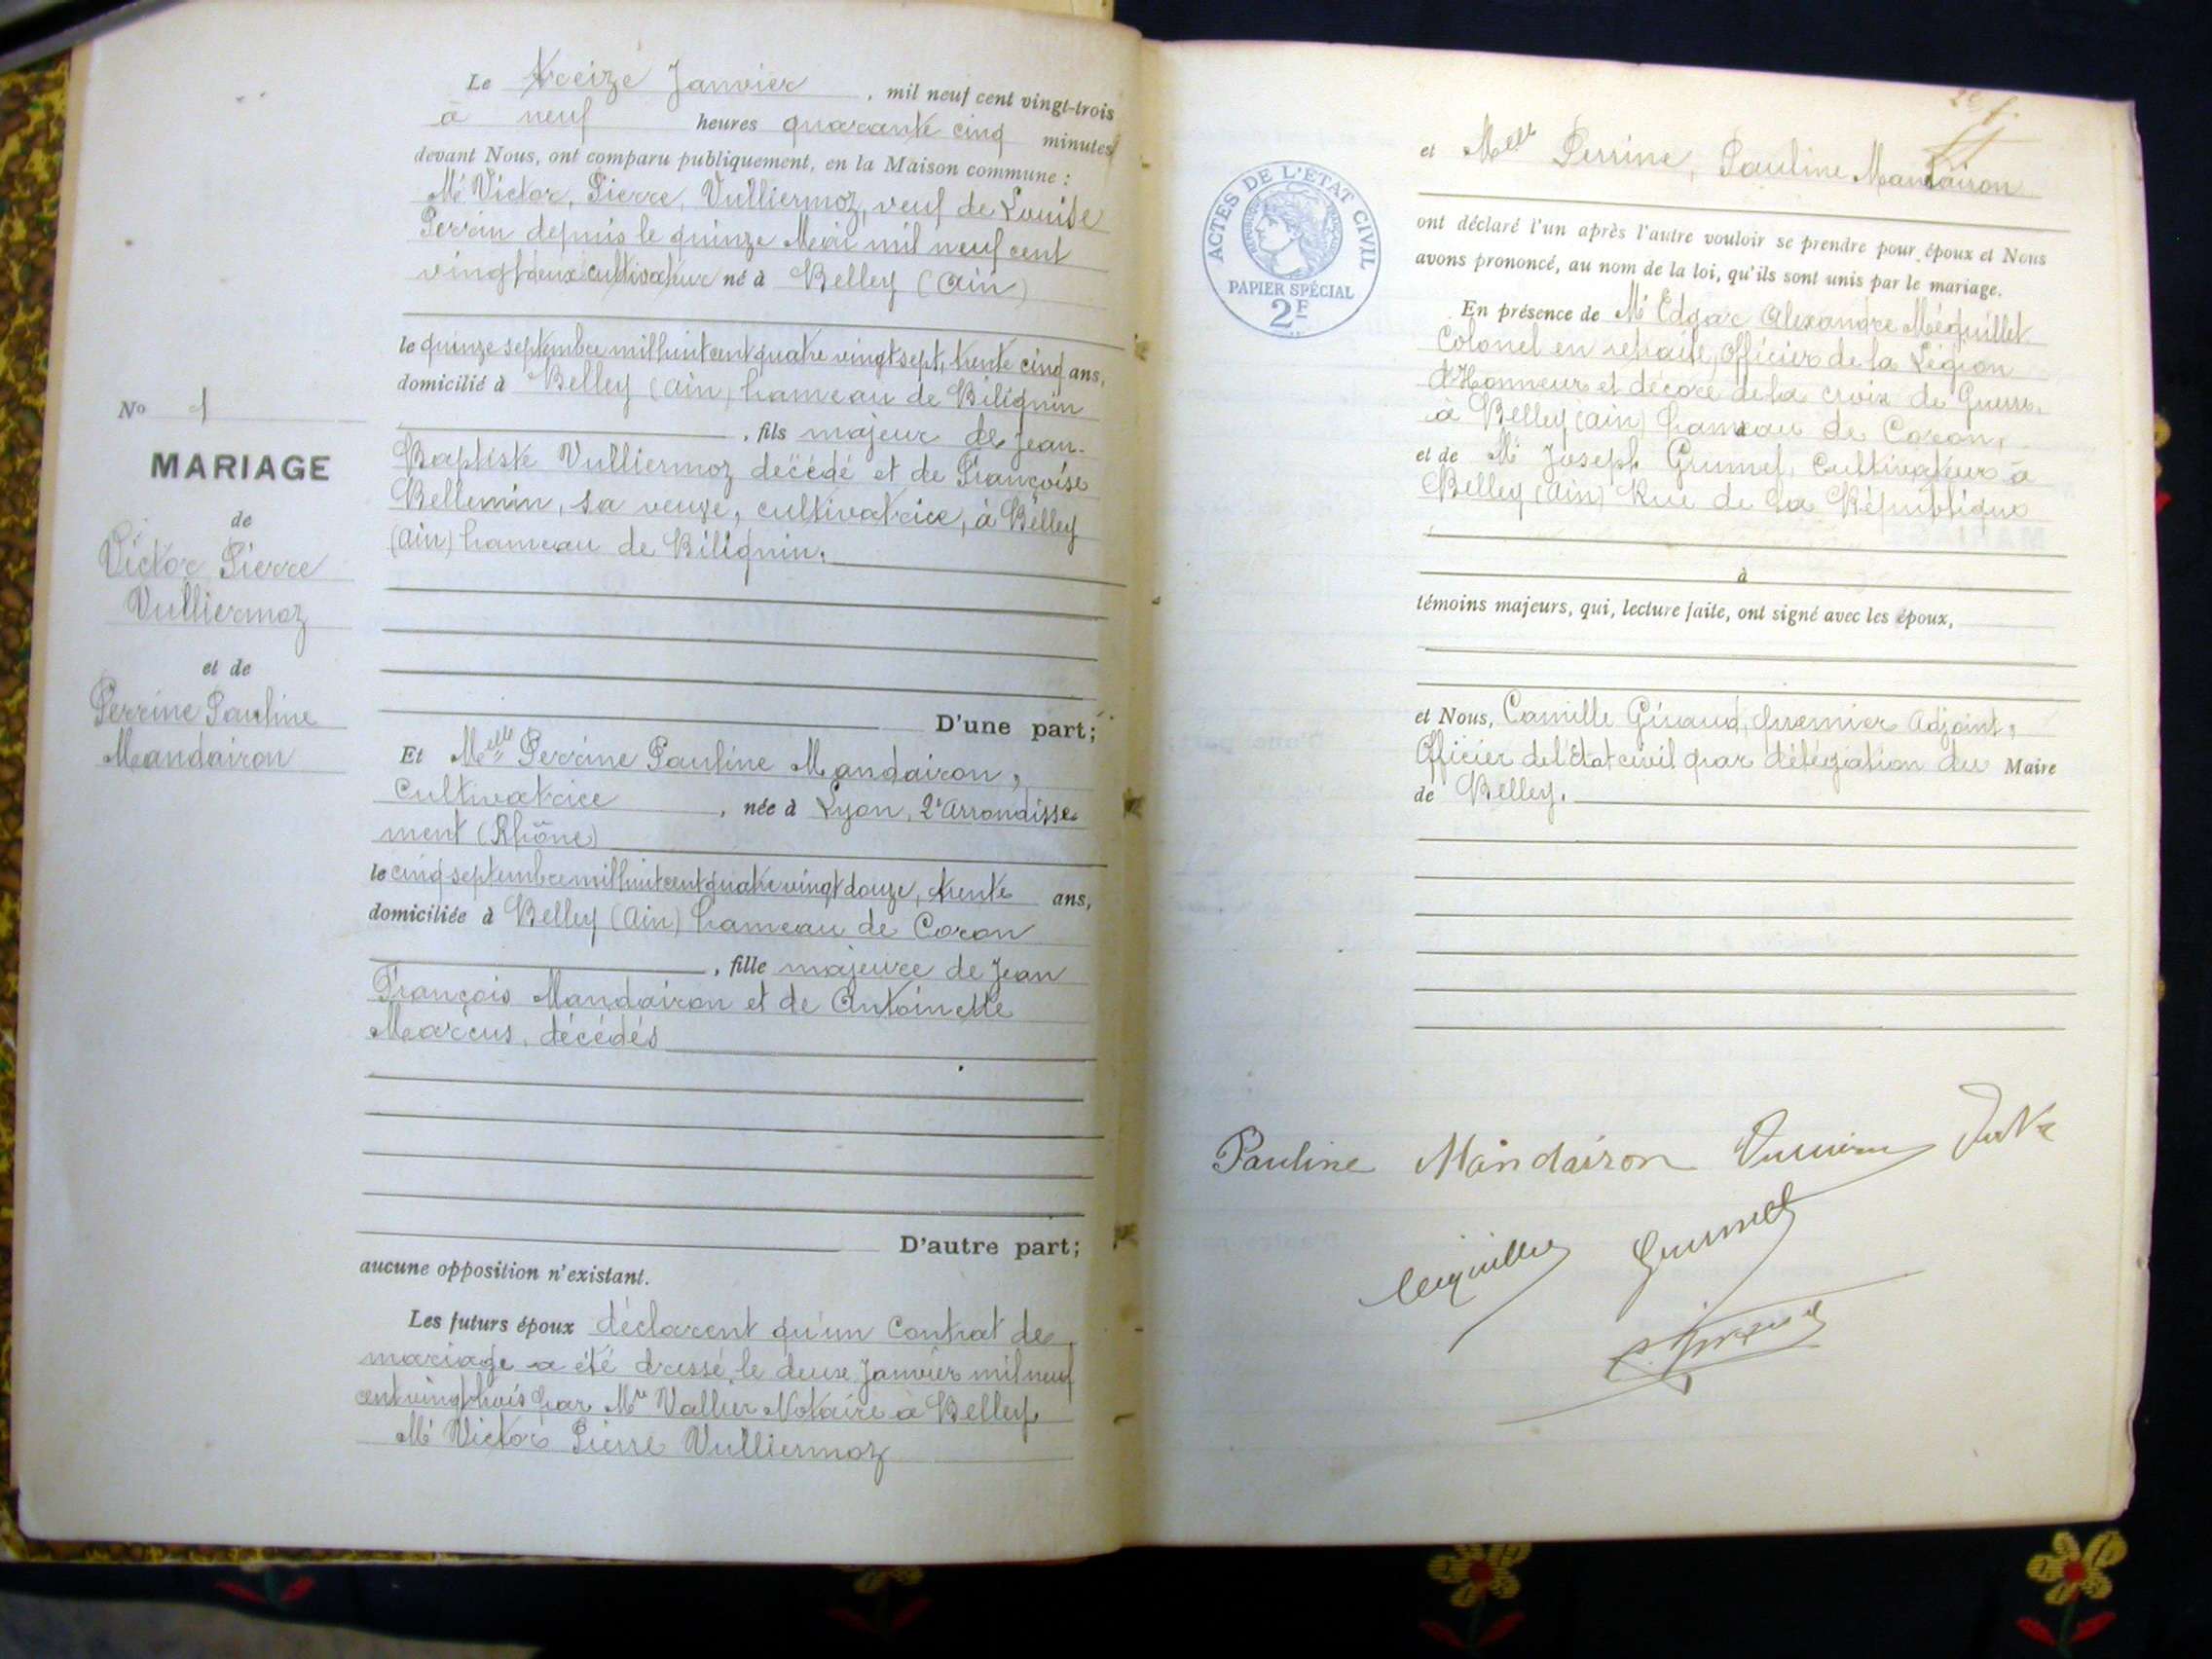 Le Treize Janvier, mil neuf cent vingt-trois
à neuf heures quarante cinq minutes
devant Nous, ont comparu publiquement, en la Maison commune :
Mr Victor, Pierre, Vulliermoz, veuf de Louise
Perrin depuis le quinze Mai mil neuf cent
vingt deux cultivateur né à Belley (Ain)
le quinze septembre mil huit cent quatre vingt sept, trente cinq ans,
domicilié à Belley (Ain) hameau de Bilignin
, fils majeur de Jean-
Baptiste Vulliermoz décédé et de Françoise
Bellemin, sa veuve, cultivatrice, à Belley
(Ain) hameau de Bilignin.
D'une part;
No 1
MARIAGE
de
Victor Pierre
Vulliermoz
et de
Perrine Pauline
Mandairon
Et Melle Perrine Pauline Mandairon,
Cultivatrice, née à Lyon, 2e Arrondisse-
ment (Rhône)
le cinq septembre mil huit cent quatre vingt douze, trente ans,
domiciliée à Belley (Ain) hameau de Coron
, fille majeure de Jean
François Mandairon et de Antoinette
Marcus, décédés
D'autre part;
aucune opposition n'existant.
Les futurs époux déclarent qu'un Contrat de
mariage a été dressé le deux Janvier mil neuf
cent vingt trois par Me Vallier Notaire à Belley
Mr Victor Pierre Vulliermoz
2e f.
et Melle Perrine, Pauline Mandairon
ACTES DE L'ÉTAT CIVIL
PAPIER SPÉCIAL
2F
ont déclaré l'un après l'autre vouloir se prendre pour époux et Nous
avons prononcé, au nom de la loi, qu'ils sont unis par le mariage.
En présence de Mr Edgar Alexandre Méquillet
Colonel en retraite, Officier de la Légion
d'Honneur et décoré de la croix de Guerre,
à Belley (Ain) hameau de Coron,
et de Mr Joseph Grumet, Cultivateur à
Belley (Ain) Rue de la République
à
témoins majeurs, qui, lecture faite, ont signé avec les époux,
et Nous, Camille Giraud, premier Adjoint,
Officier de l'État civil par délégation du Maire
de Belley.
Pauline Mandairon
Méquillet Grumet